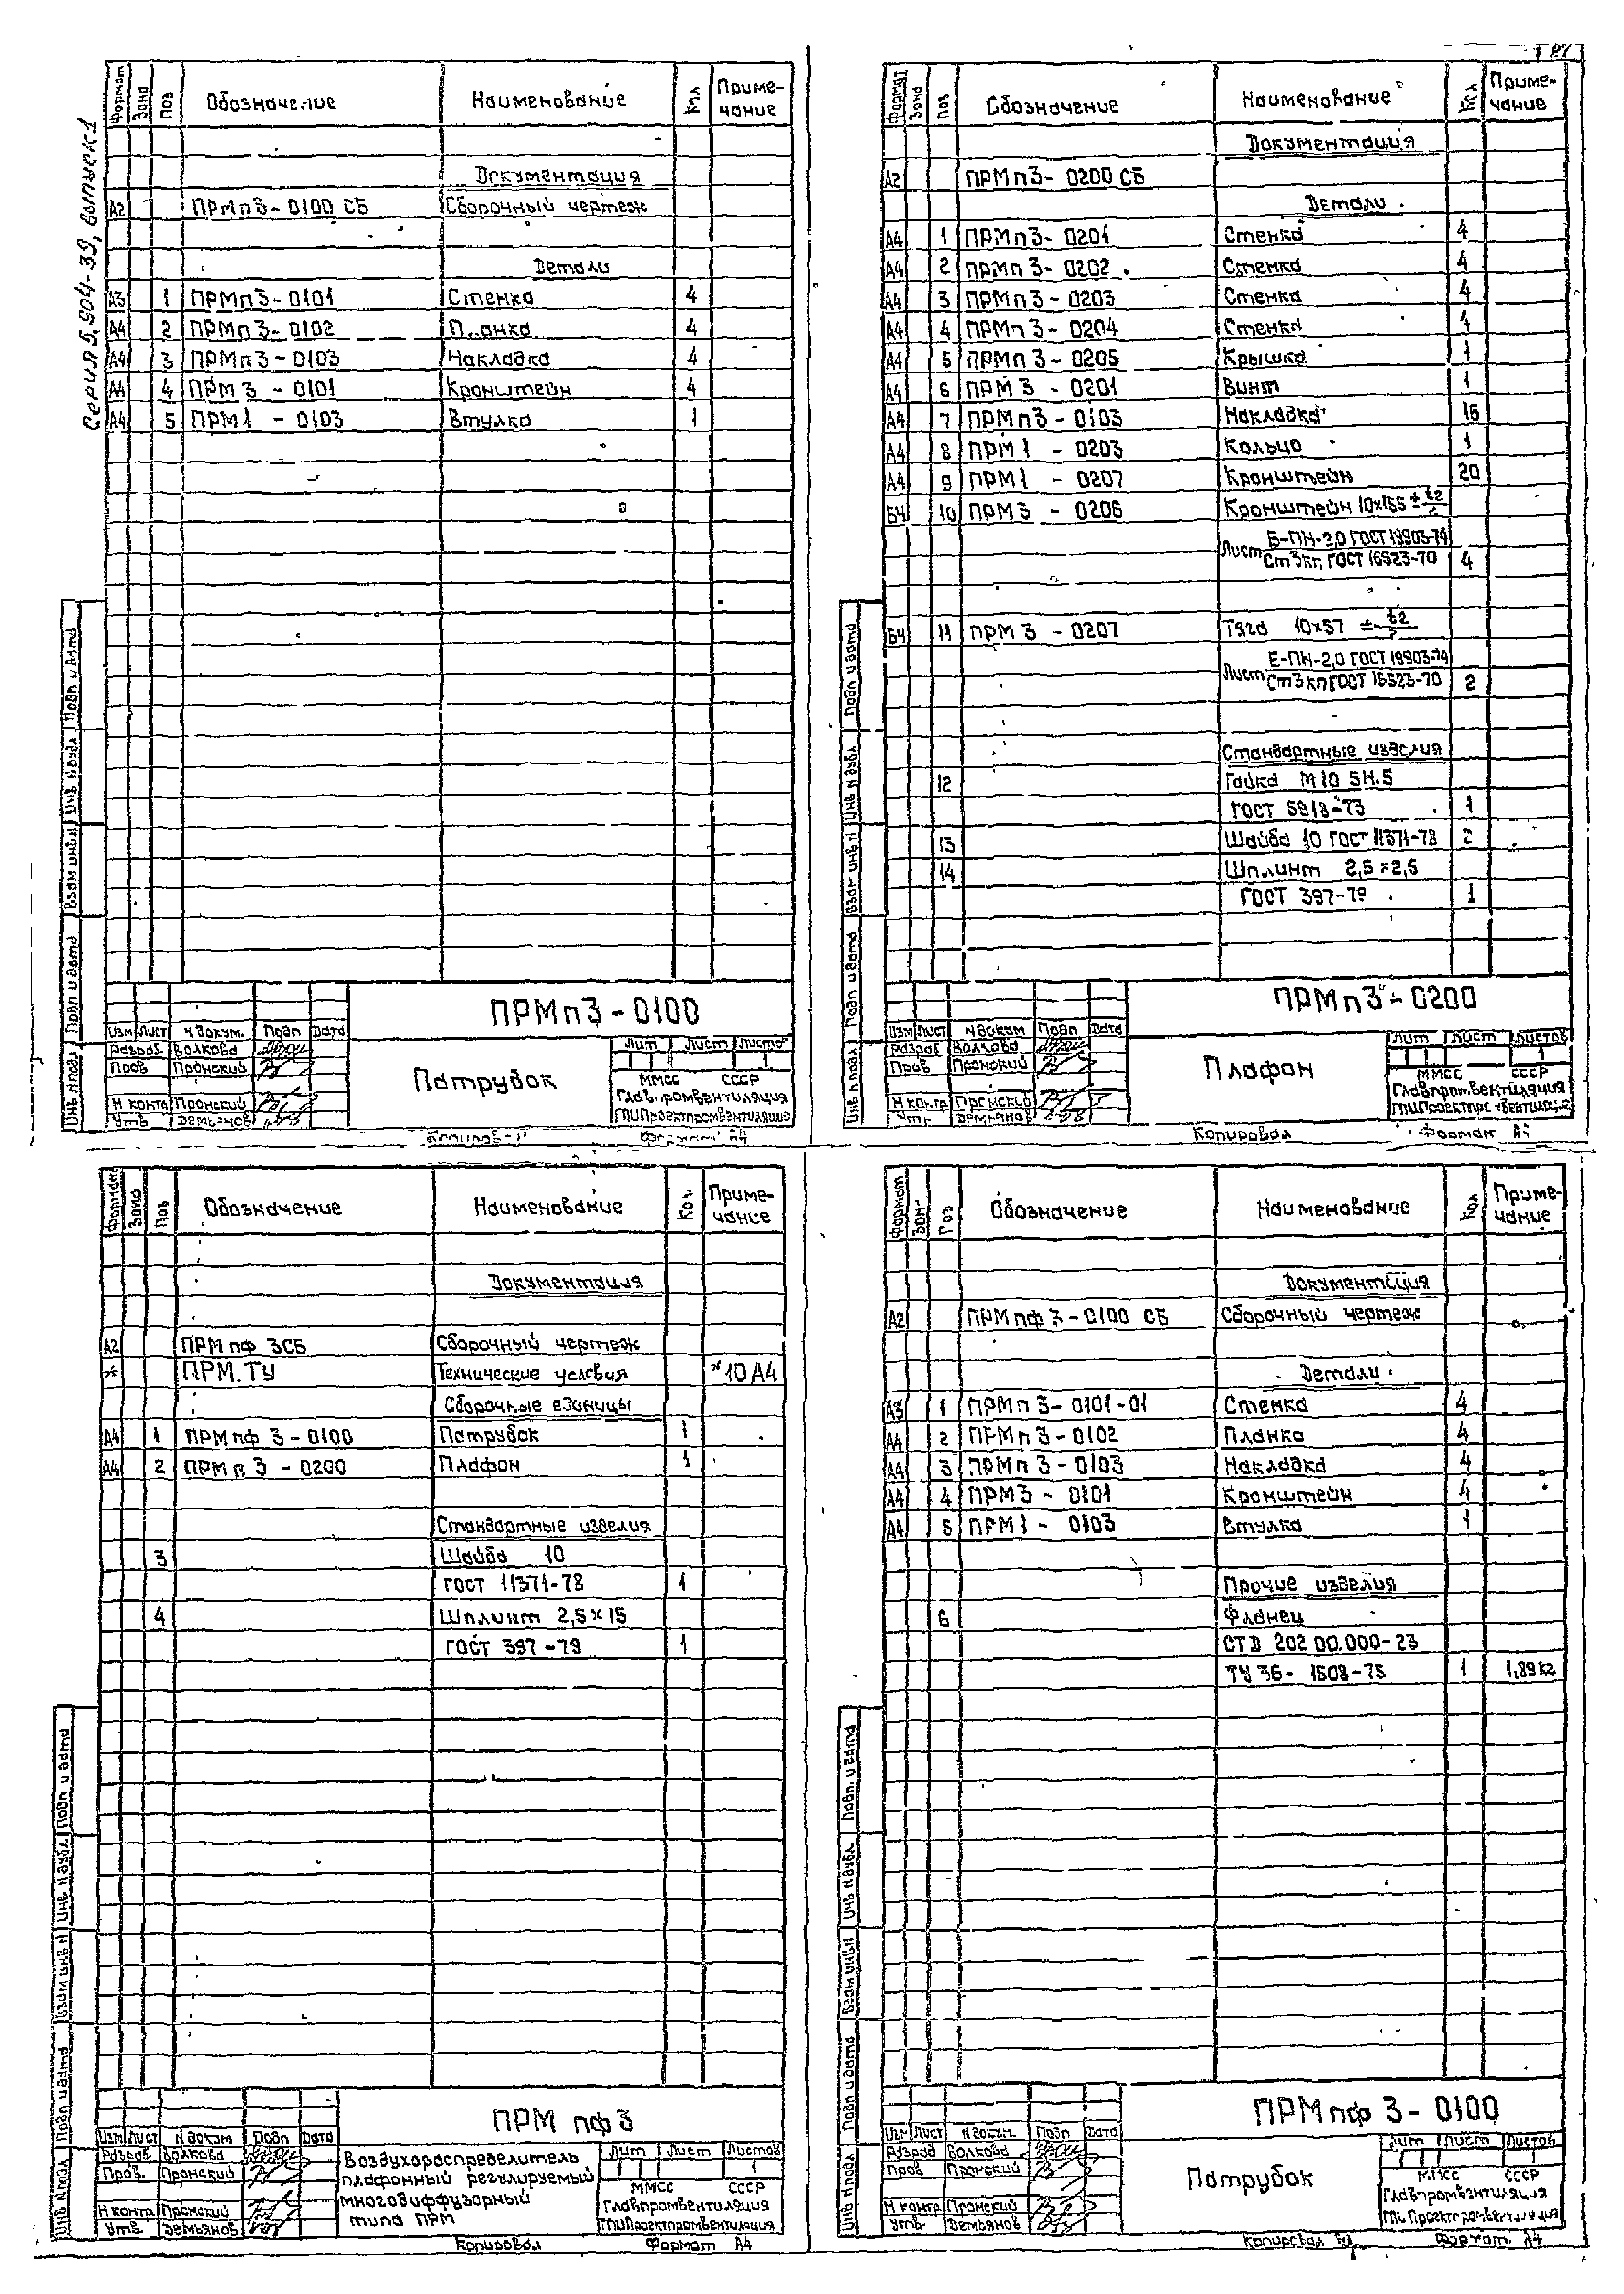 Серия 5.904-39, выпуск 1
Формат Зона Поз Обозначение Наименование Кол Приме-
чание
Документация
А2 ПРМп3-0100 СБ Сборочный чертеж
Детали
А3 1 ПРМп3-0101 Стенка 4
А4 2 ПРМп3-0102 4
А4 3 ПРМп3-0103 Накладка 4
А4 4 ПРМ 3 - 0101 Кронштейн 4
А4 5 ПРМ1 - 0103 Втулка 1
Инв N подл Подп и дата Взам инв N Инв N дубл Подп и дата
ПРМп3-0100
Изм Лист N докум. Подп Дата
Разраб Волкова
Пров Пронский
Н контр Пронский
Утв Демьянов
Патрубок
Лит Лист Листов
1
ММСС СССР
Главпромвентиляция
ГПИПроектпромвентиляция
Копировал Формат А4
Формат Зона Поз Обозначение Наименование Кол Приме-
чание
Документация
А2 ПРМп3-0200 СБ
Детали
А4 1 ПРМп3-0201 Стенка 4
А4 2 ПРМп3-0202 Стенка 4
А4 3 ПРМп3-0203 Стенка 4
А4 4 ПРМп3-0204 Стенка 4
А4 5 ПРМп3-0205 Крышка 1
А4 6 ПРМ 3 - 0201 Винт 1
А4 7 ПРМп3-0103 Накладка 16
А4 8 ПРМ1 - 0203 Кольцо 1
А4 9 ПРМ1 - 0207 Кронштейн 20
БЧ 10 ПРМ3 - 0206 Кронштейн 10х155 ± t2/2
Лист Б-ПН-2,0 ГОСТ 19903-74
Ст3кп ГОСТ 16523-70 4
БЧ 11 ПРМ 3 - 0207 Тяга 10х57 ± t2/2
Лист Б-ПН-2,0 ГОСТ 19903-74
Ст3кп ГОСТ 16523-70 2
Стандартные изделия
12 Гайка М10 5Н.5
ГОСТ 5918-73 1
13 Шайба 10 ГОСТ 11371-78 2
14 Шплинт 2,5×2,5
ГОСТ 397-79 1
Инв N подл Подп и дата Взам инв N Инв N дубл Подп и дата
ПРМп3-0200
Изм Лист N докум Подп Дата
Разраб Волкова
Пров Пронский
Н контр Пронский
Утв Демьянов
Плафон
Лит Лист Листов
1
ММСС СССР
Главпромвентиляция
ГПИПроектпромвентиляция
Копировал Формат А4
Формат Зона Поз Обозначение Наименование Кол. Приме-
чание
Документация
А2 ПРМпф 3СБ Сборочный чертеж
* ПРМ.ТУ Технические условия *10 А4
Сборочные единицы
А4 1 ПРМпф 3-0100 Патрубок 1
А4 2 ПРМп 3 - 0200 Плафон 1
Стандартные изделия
3 Шайба 10
ГОСТ 11371-78 1
4 Шплинт 2,5×15
ГОСТ 397-79 1
Инв N подл Подп и дата Взам инв N Инв N дубл Подп и дата
ПРМ пф 3
Изм Лист N докум Подп Дата
Разраб. Волкова
Пров Пронский
Н контр Пронский
Утв. Демьянов
Воздухораспределитель
плафонный регулируемый
многодиффузорный
типа ПРМ
Лит Лист Листов
1
ММСС СССР
Главпромвентиляция
ГПИПроектпромвентиляция
Копировал Формат А4
Формат Зона Поз Обозначение Наименование Кол Приме-
чание
Документация
А2 ПРМпф 3-0100 СБ Сборочный чертеж
Детали
А3 1 ПРМп 3-0101-01 Стенка 4
А4 2 ПРМп 3-0102 Планка 4
А4 3 ПРМп 3-0103 Накладка 4
А4 4 ПРМ3 - 0101 Кронштейн 4
А4 5 ПРМ1 - 0103 Втулка 1
Прочие изделия
6 Фланец
СТД 202 00.000-23
ТУ 36- 1508-75 1 1,89 кг
Инв N подл Подп и дата Взам инв N Инв N дубл Подп. и дата
ПРМпф 3-0100
Изм Лист N докум. Подп Дата
Разраб Волкова
Пров Пронский
Н контр Пронский
Утв. Демьянов
Патрубок
Лит Лист Листов
1
ММСС СССР
Главпромвентиляция
ГПИ Проектпромвентиляция
Копировал Формат. А4